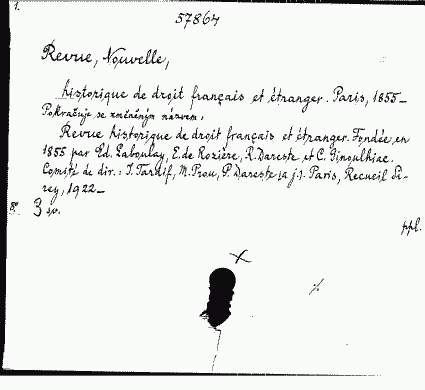 1.
57867
Revue, Nouvelle,
historique de droit français et étranger. Paris, 1855–
Pokračuje se změněným názvem:
Revue historique de droit français et étranger. Fondée en
1855 par Ed. Laboulay, E. de Rozière, R. Dareste et C. Ginoulhiac.
Comité de dir.: J. Tardif, M. Prou, P. Dareste (a j.). Paris, Recueil Si-
rey, 1922–
8°. 3 sv.
ppl.